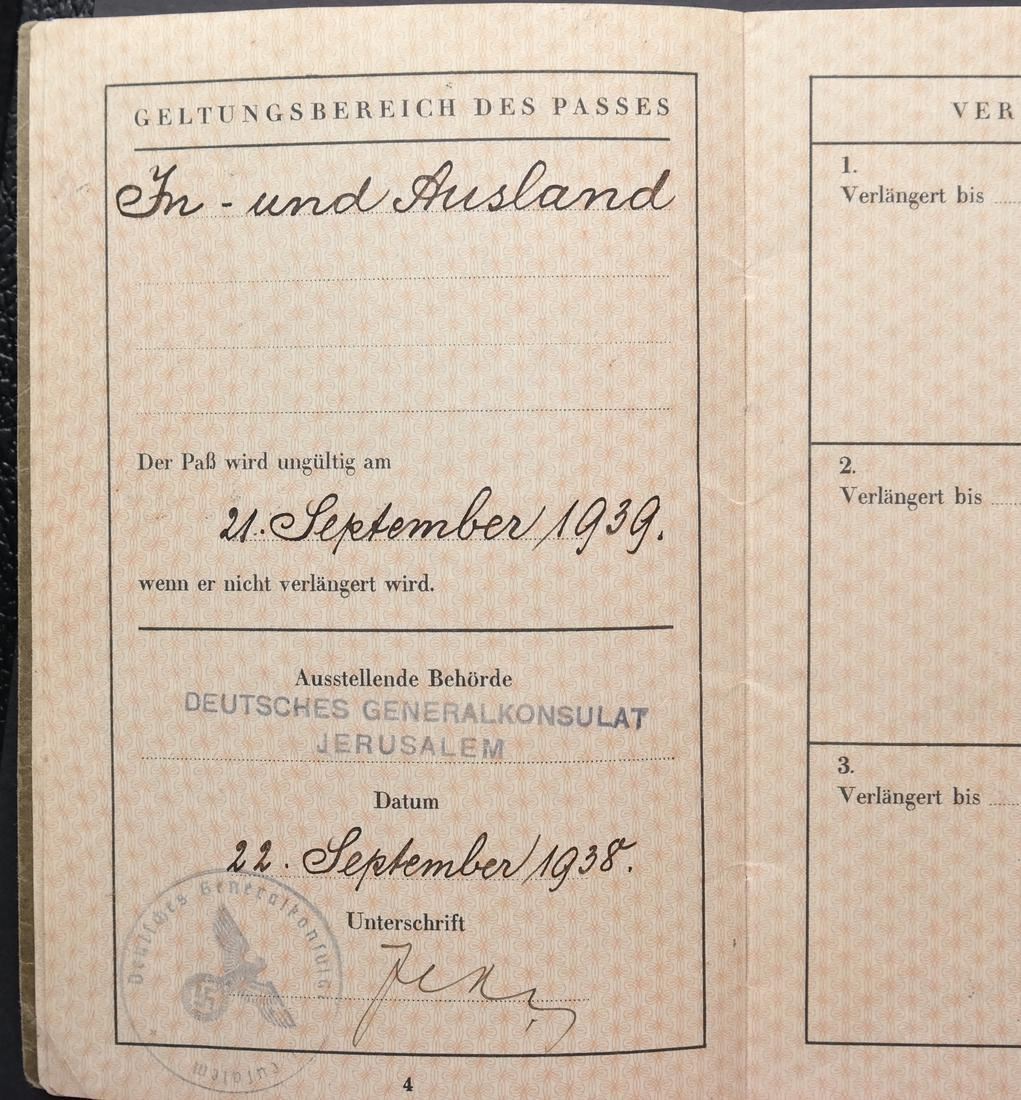 GELTUNGSBEREICH DES PASSES
In- und Ausland
Der Paß wird ungültig am
21. September 1939.
wenn er nicht verlängert wird.
Ausstellende Behörde
DEUTSCHES GENERALKONSULAT
JERUSALEM
Datum
22. September 1938.
Unterschrift
Deutsches Generalkonsulat
4
VER
1.
Verlängert bis
2.
Verlängert bis
3.
Verlängert bis